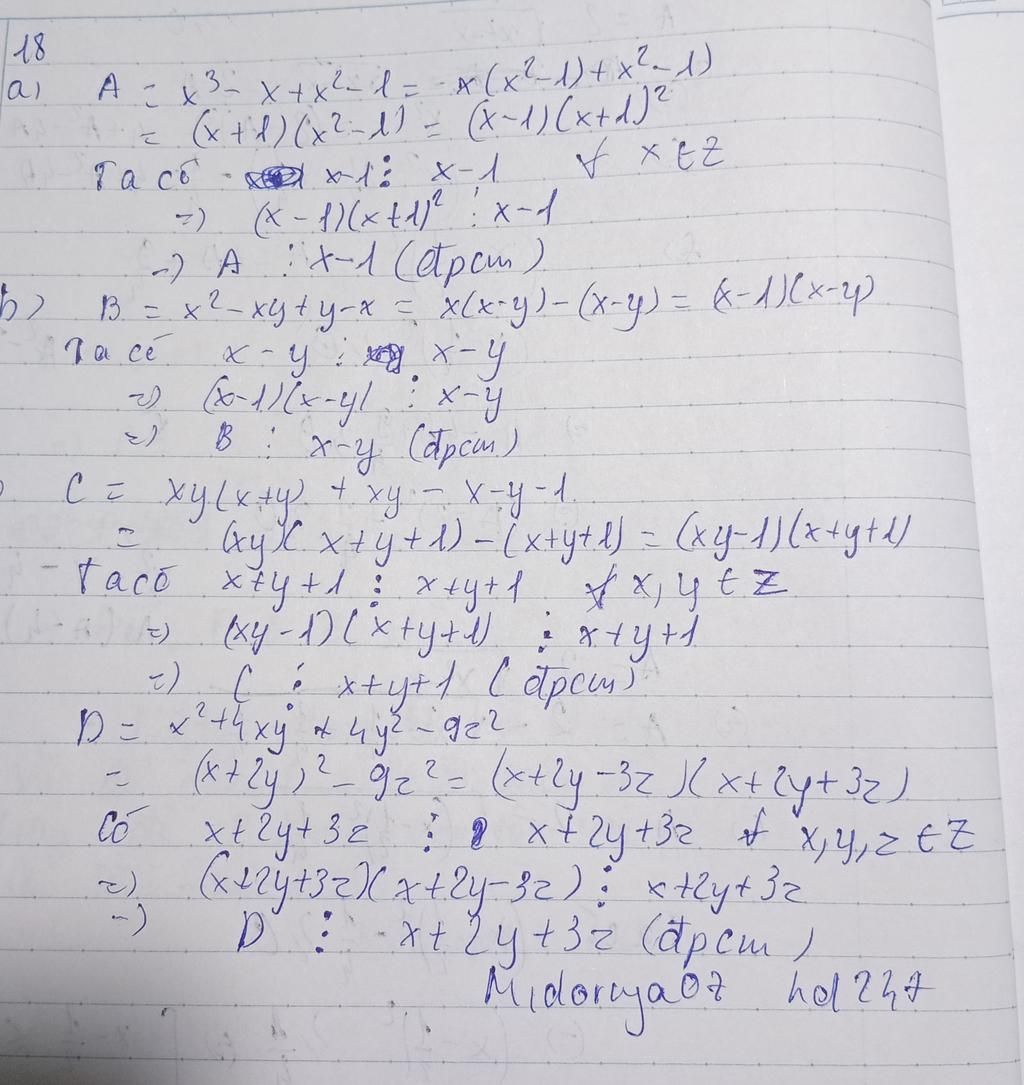 18
a) A = x³ - x + x² - 1 = x(x²-1) + x² - 1)
= (x+1)(x²-1) = (x-1)(x+1)²
Ta có x-1 ⋮ x-1 ∀ x ∈ Z
=) (x-1)(x+1)² ⋮ x-1
=) A ⋮ x-1 (đpcm)
b) B = x² - xy + y - x = x(x-y) - (x-y) = (x-1)(x-y)
Ta có x - y ⋮ x-y
=) (x-1)(x-y) ⋮ x-y
=) B ⋮ x-y (đpcm)
C = xy(x+y) + xy - x-y-1
= (xy)(x+y+1) - (x+y+1) = (xy-1)(x+y+1)
Ta có x+y+1 ⋮ x+y+1 ∀ x, y ∈ Z
=) (xy-1)(x+y+1) ⋮ x+y+1
=) C ⋮ x+y+1 (đpcm)
D = x² + 4xy + 4y² - 9z²
= (x+2y)² - 9z² = (x+2y-3z)(x+2y+3z)
Có x+2y+3z ⋮ x+2y+3z ∀ x,y,z ∈ Z
=) (x+2y+3z)(x+2y-3z) ⋮ x+2y+3z
=) D ⋮ x+2y+3z (đpcm)
Midoruya07 hd247